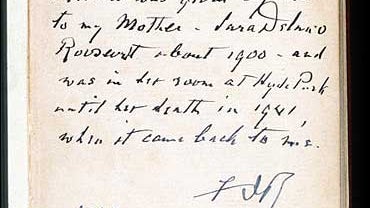 it was given
to my Mother - Sara Delano
Roosevelt about 1900 - and
was in her room at Hyde Park
until her death in 1941,
when it came back to me.
FDR